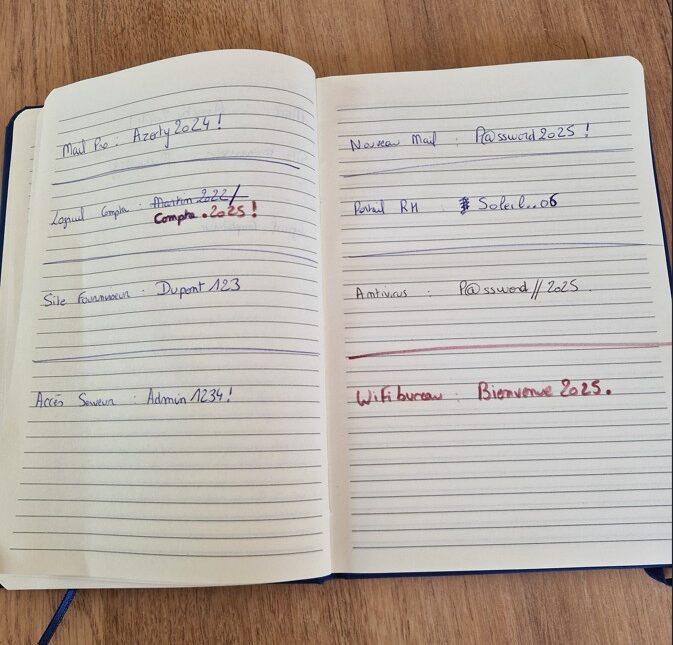 Mail Pro : Azerty2024!
Logiciel Compta : Martin 2022/
Compta.2025!
Site Fournisseur : Dupont 123
Accès Serveur : Admin 1234!
Nouveau Mail : P@ssword2025!
Portail RH : Soleil..06
Antivirus : P@ssword//2025.
WiFi bureau : Bienvenue 2025.